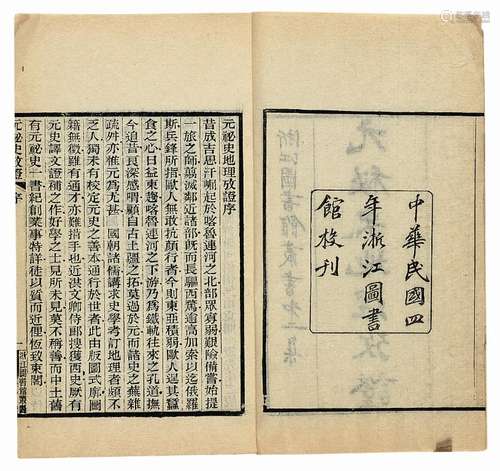 中華民國四
年浙江圖書
館校刊
元祕史地理攷證序
昔成吉思汗崛起於喀魯連河之北部眾寡弱艱險備嘗始提
一旅之師翦滅鄰近諸部旣而長驅西騖逾高加索以迄俄羅
斯兵鋒所指歐人無敢抗顏行者今則東亞積弱歐人逞其蠶
食之心日益東趨喀魯連河之下乃爲鐵軌往來之孔道撫
今追昔良深感喟顧自古土疆之拓莫過於元而諧史之蕪雜
疏舛亦惟元爲尤甚 國朝諸儒講求史學考訂地理者頗不
乏人獨未有校定元史之善本通行於世者此由版圖式廓圖
籍無徵雖有通才亦難措手也近洪文卿侍郎搜獲西史厥有
元史譯文證補之作好學之士見所未見莫不稱善而中土舊
有元祕史一書紀創業事特詳徒以質而近俚恆致束閣
元祕史攷證 序
一
浙江圖書館叢書
浙江圖書館叢書第二集